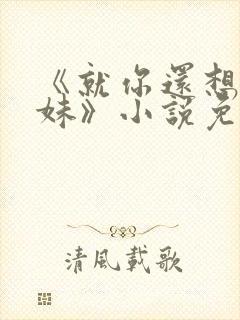 《就你還想
妹》小說免
清風載歌